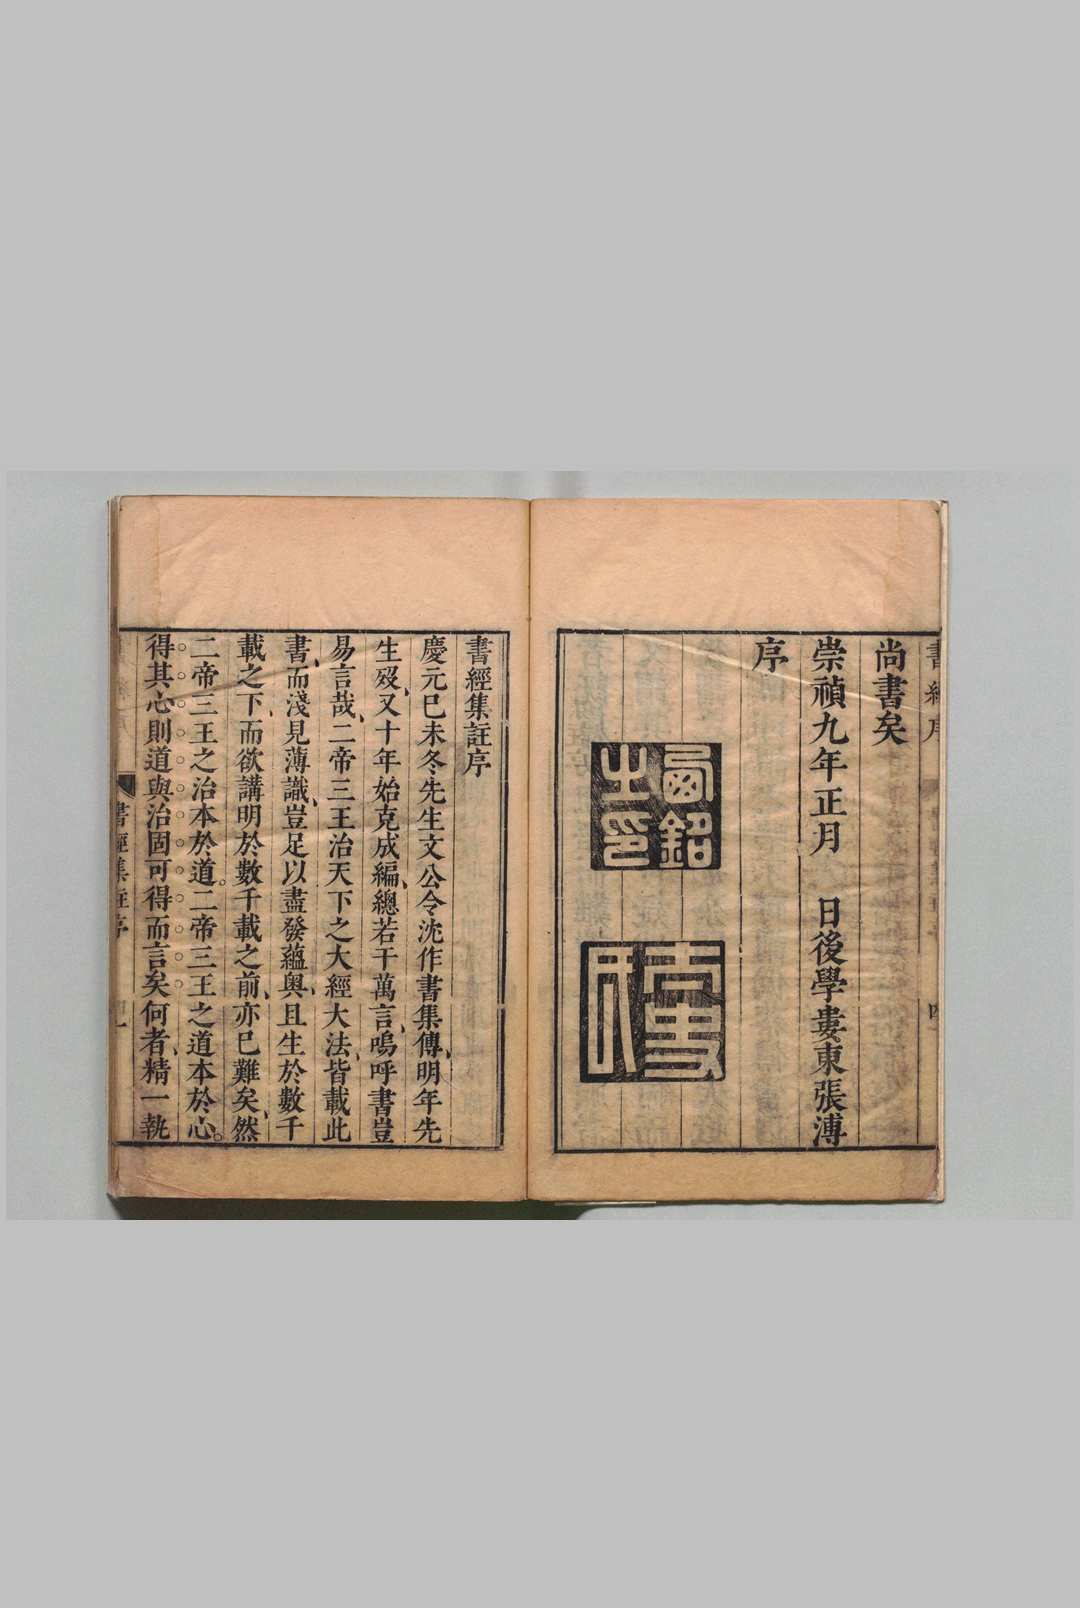 書經序
尚書矣
崇禎九年正月　日後學婁東張溥
序
西銘之印
書經集註序
慶元巳未冬先生文公令沈作書集傳、明年先
生歿、又十年始克成編、總若干萬言、嗚呼書豈
易言哉、二帝三王治天下之大經大法、皆載此
書、而淺見薄識、豈足以盡發蘊奧、且生於數千
載之下、而欲講明於數千載之前、亦巳難矣、然
二帝三王之治本於道。二帝三王之道本於心。
得其心則道與治固可得而言矣何者、精一執
書經集註序